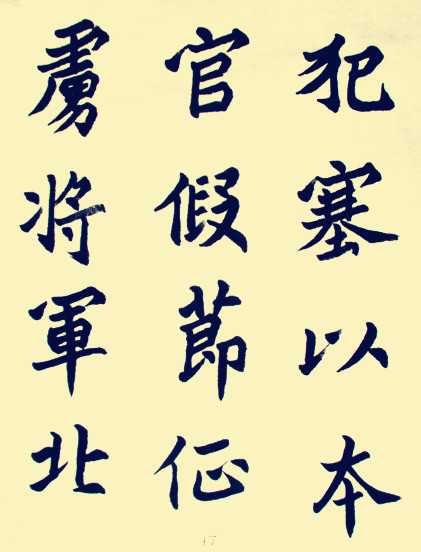 犯塞以本
官假節征
虜將軍北